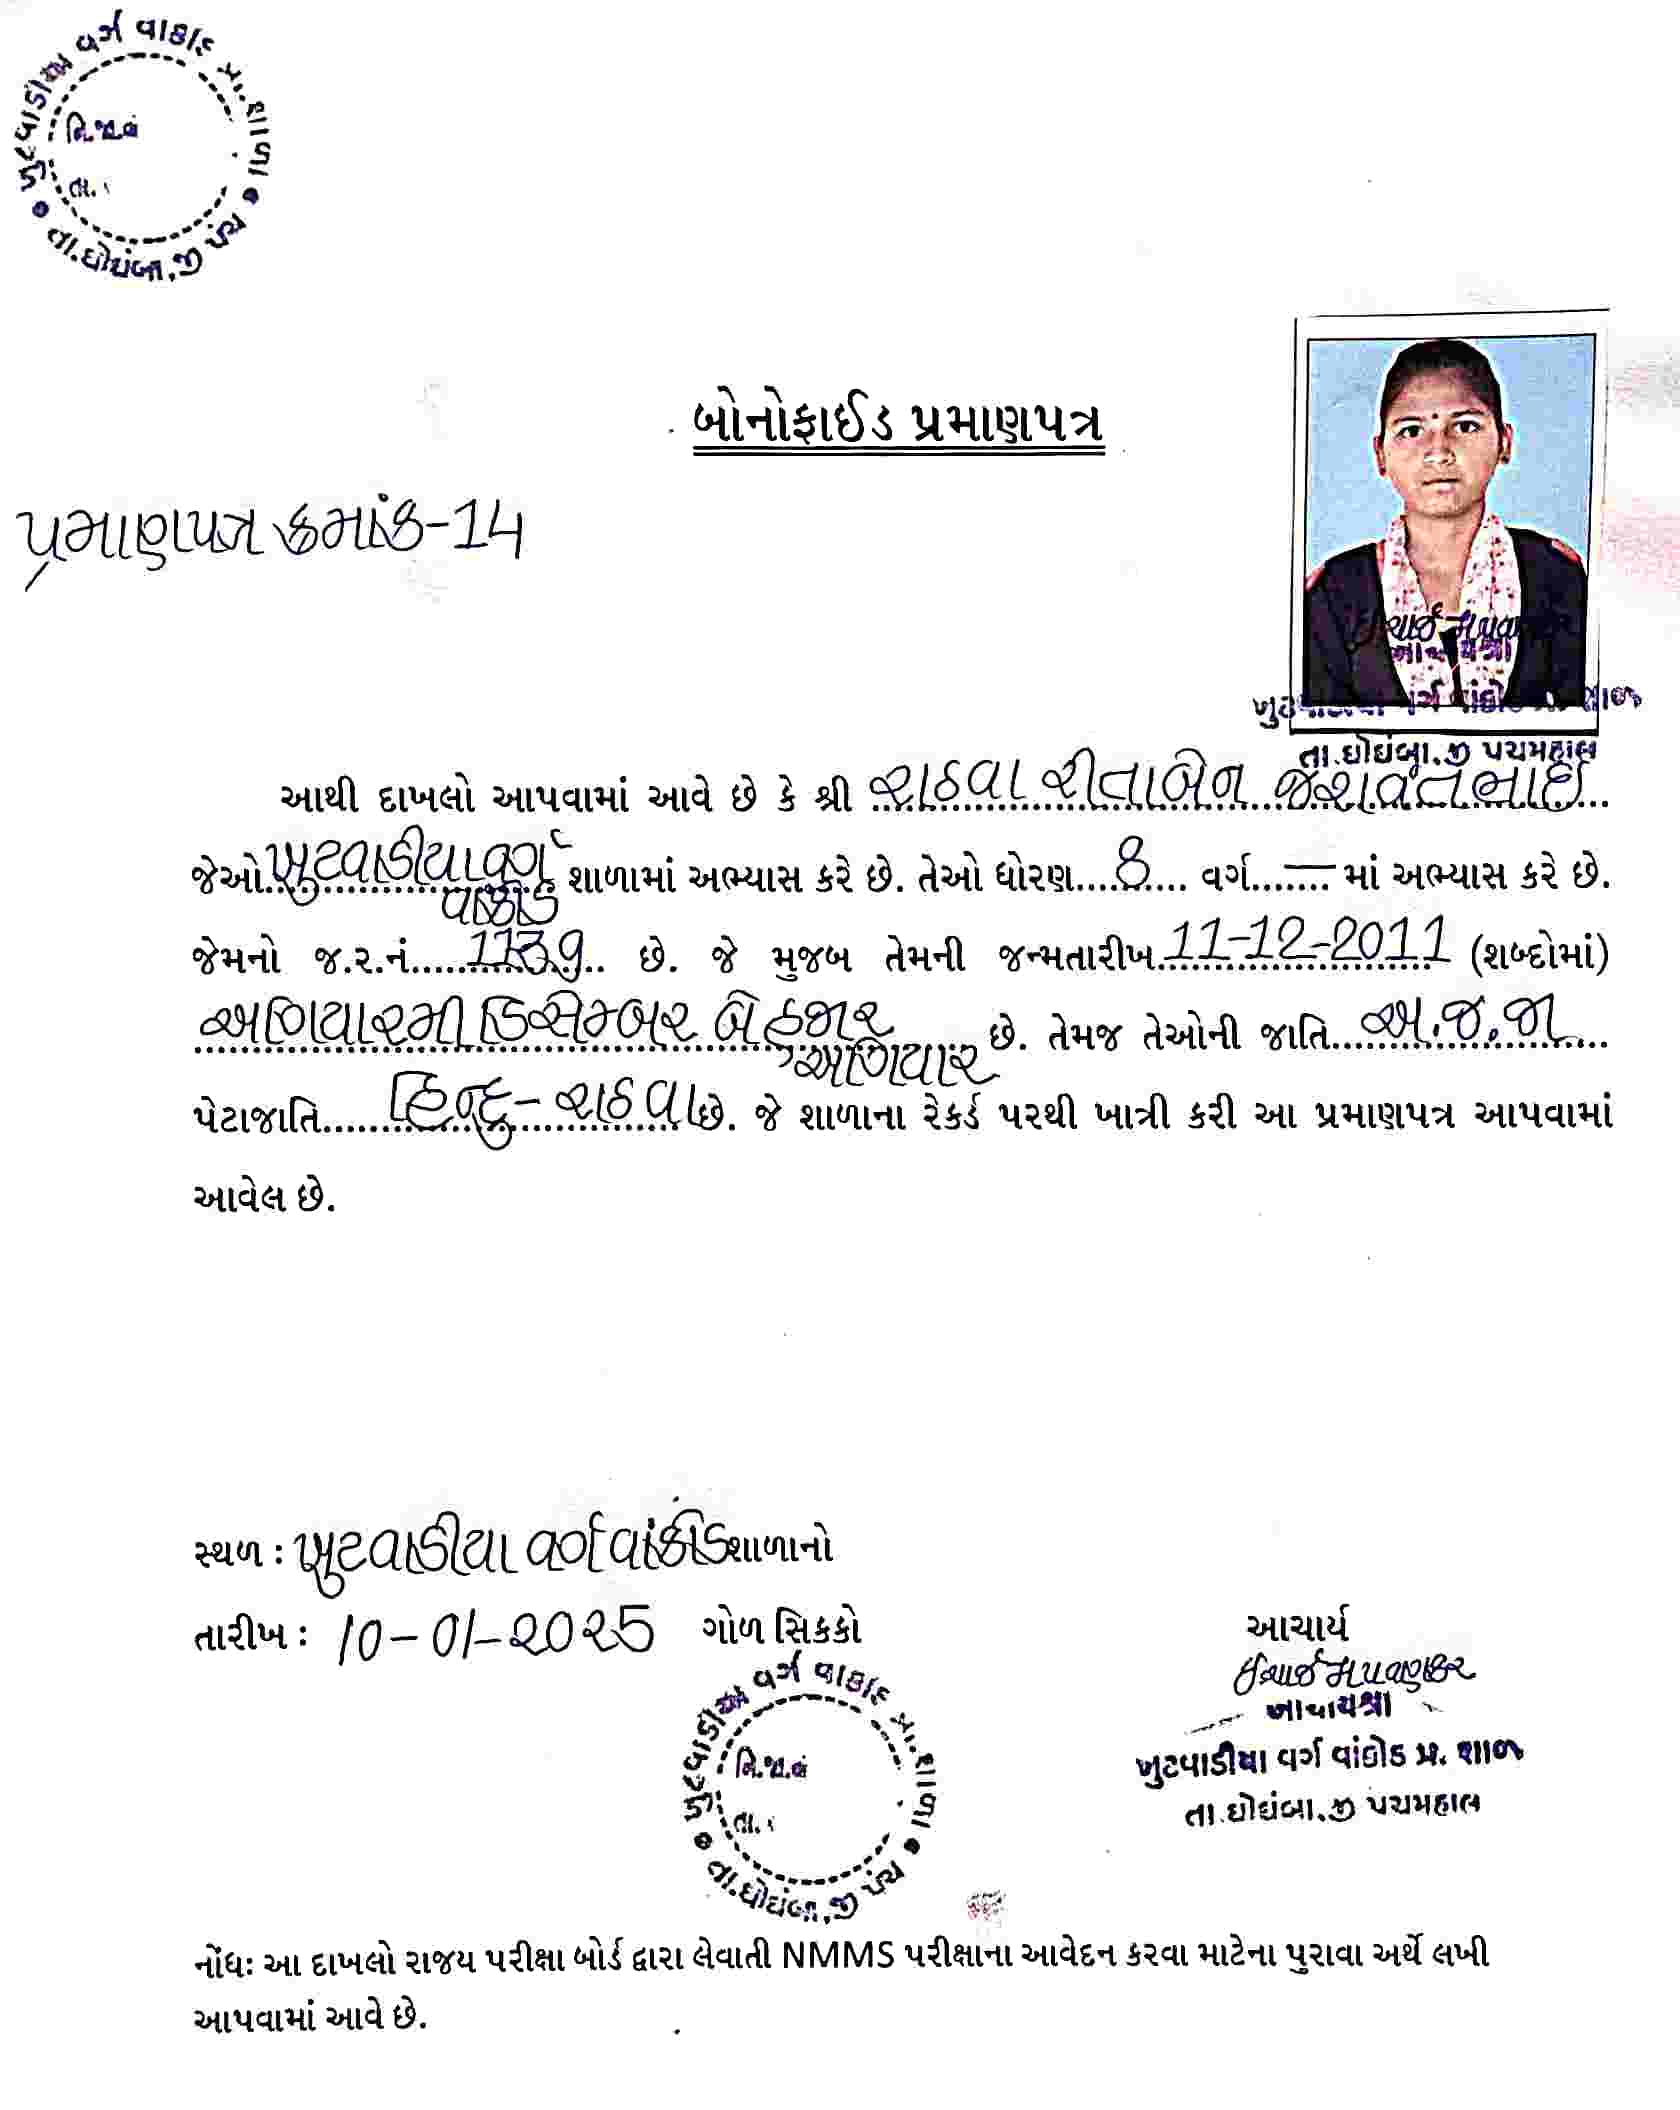 વર્ગ વાકોડ પ્રા.શાળા
નિ.જા.નં
તા.
તા.ઘોઘંબા,જી પંચ
બોનોફાઈડ પ્રમાણપત્ર
પ્રમાણપત્ર ક્રમાંક-14
તા.ઘોઘંબા.જી પંચમહાલ
આથી દાખલો આપવામાં આવે છે કે શ્રી રાઠવા રીતાબેન જશવંતભાઈ
જેઓ ખુટવાડીયા વર્ગ વાંકોડ શાળામાં અભ્યાસ કરે છે. તેઓ ધોરણ....8.... વર્ગ....—માં અભ્યાસ કરે છે.
જેમનો જ.ર.નં.....1139.. છે. જે મુજબ તેમની જન્મતારીખ.11-12-2011 (શબ્દોમાં)
અગિયારમી ડિસેમ્બર બે હજાર અગિયાર છે. તેમજ તેઓની જાતિ...અ.જ.જા
પેટાજાતિ.....હિન્દુ-રાઠવા છે. જે શાળાના રેકર્ડ પરથી ખાત્રી કરી આ પ્રમાણપત્ર આપવામાં
આવેલ છે.
સ્થળ : ખુટવાડીયા વર્ગ વાંકોડ શાળાનો
તારીખ : 10-01-2025 ગોળ સિકકો
આચાર્ય
આચાર્યશ્રી
ખુટવાડીયા વર્ગ વાંકોડ પ્રા. શાળા
તા.ઘોઘંબા.જી પંચમહાલ
વર્ગ વાકોડ પ્રા.શાળા
નિ.જા.નં
તા.
તા.ઘોઘંબા,જી પંચ
નોંધઃ આ દાખલો રાજય પરીક્ષા બોર્ડ દ્વારા લેવાતી NMMS પરીક્ષાના આવેદન કરવા માટેના પુરાવા અર્થે લખી
આપવામાં આવે છે.